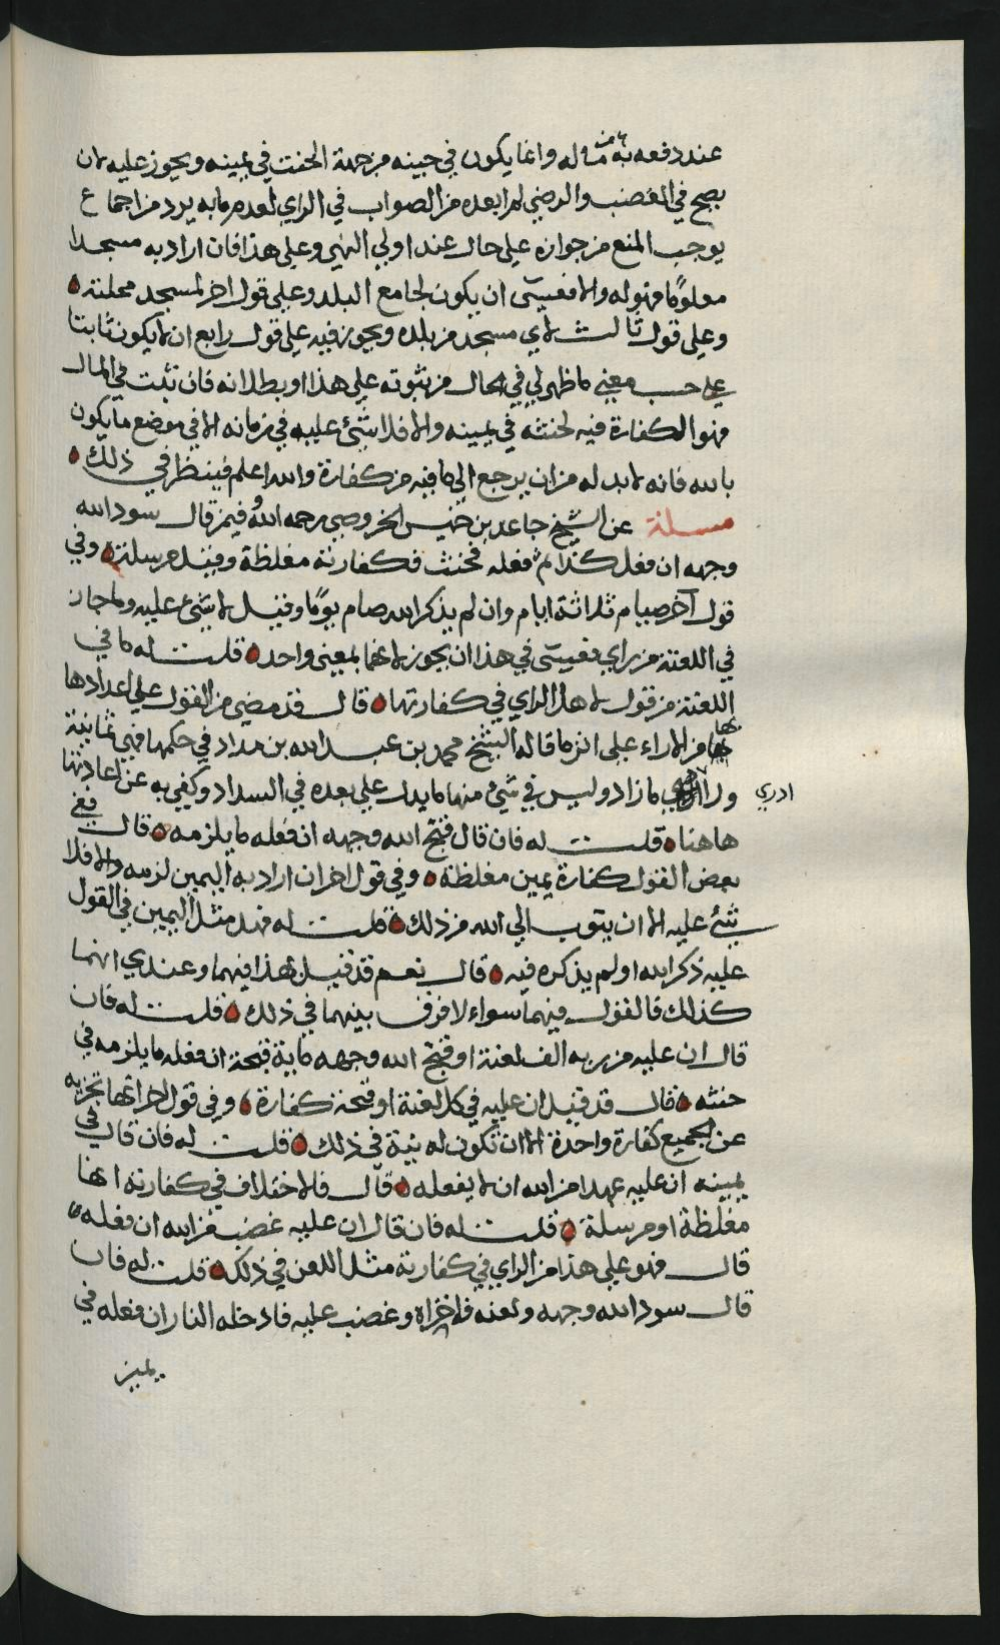 عند دفعه به من ماله وانما يكون في حينه من جهة الحنث في يمينه ويجوز عليه لان
يصح في الغضب والرضي لما بعده من الصواب في الراي لعدم ما به يرد من اجماع
يوجب المنع من جوازه على حال عند اولي النهى وعلى هذا فان اراد به مسجدا
معلوما فهو له والا فعسى ان يكون لجامع البلد وعلى قول اخر لمسجد محلته
وعلى قول ثالث لاي مسجد من بلده ويجوز فيه على قول رابع ان لا يكون ثابتا
على حسب معنى ما ظهر لي في الحال من ثبوته على هذا او بطلانه فان ثبت في المال
فهو الكفارة فيه لحنثه في يمينه والا فلا شئ عليه في زمانه الا في موضع ما يكون
بالله فانه لابد له من ان يرجع الى ما فيه من كفارة والله اعلم فينظر في ذلك
مسئلة عن الشيخ جاعد بن خميس الخروصي رحمه الله وفيمن قال سود الله
وجهه ان فعل كذا ثم فعله فحنث فكفارته مغلظة وقيل مرسلة وفي
قول آخر صيام ثلاثة ايام وان لم يذكر الله صام يوما وقيل لا شئ عليه وما جاز
في اللعنة من راي فعسى في هذا ان يجوز لانهما بمعنى واحد قلت له ما في
اللعنة من قول لاهل الراي في كفارتها قال قد مضى من القول على اعدادها
بما بها من الاراء على اثر ما قاله الشيخ محمد بن عبد الله بن مداد في حكمها فهي ثمانية
ولا ادري ما زاد وليس في شئ منها ما يدل على بعده في السداد وكفى به عن اعادتها
هاهنا قلت له فان قال قبح الله وجهه ان فعله ما يلزمه قال ففي
بعض القول كفارة يمين مغلظة وفي قول اخر ان اراد به اليمين لزمه والا فلا
شئ عليه الا ان يتوب الي الله من ذلك قلت له فهل مثل اليمين في القول
عليه ذكر الله او لم يذكره فيه قال نعم قد قيل بهذا فيهما وعندي انهما
كذلك فالقول فيهما سواء لا فرق بينهما في ذلك قلت له فان
قال ان عليه من ربه الف لعنة او قبح الله وجهه ماية قبحة ان فعله ما يلزمه في
حنثه قال قد قيل ان عليه في كل لعنة او قبحة كفارة وفي قول اخر انها تجزيه
عن الجميع كفارة واحدة الا ان تكون له نية في ذلك قلت له فان قال في
يمينه ان عليه عهدا من الله ان لا يفعله قال فالاختلاف في كفارته انها
مغلظة او مرسلة قلت له فان قال ان عليه غضب من الله ان فعله
قال فهو على هذا من الراي في كفارته مثل اللعن في ذلك قلت له فان
قال سود الله وجهه ولعنه فاخزاه وغضب عليه فادخله النار ان فعله في
يمين
ادري